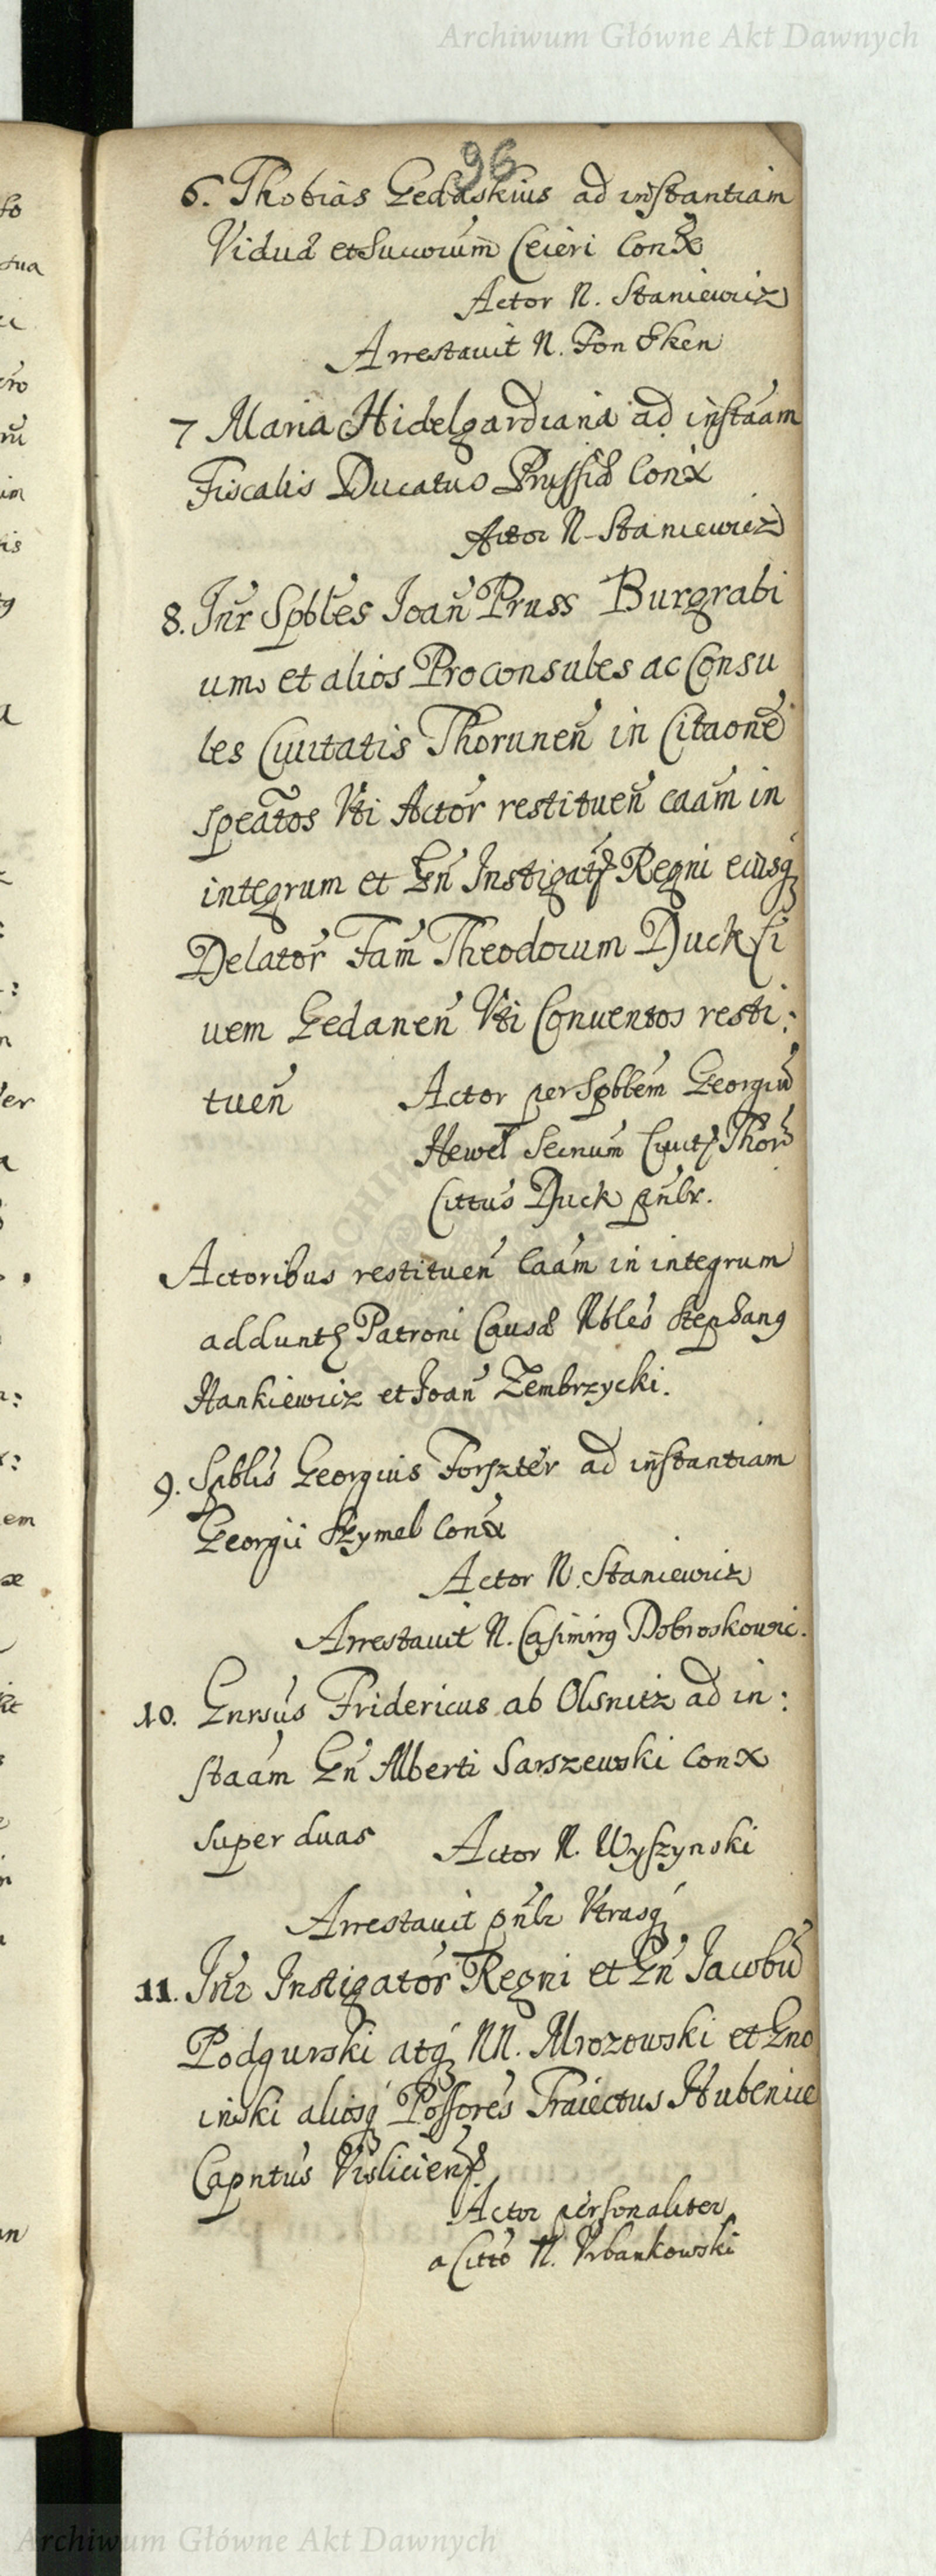 Archiwum Główne Akt Dawnych
96
6. Thobias Gedaskius ad instantiam
Viduæ et Succorum Ceieri Conx
Actor N. Staniewicz
Arrestavit N. Fon Eken
7 Maria Hidelgardiana ad instaam
Fiscalis Ducatus Prussiæ Conx
Actor N Staniewicz
8. Inr Spbles Joan Pruss Burgrabi
um et alios Proconsules ac Consu
les Civitatis Thorunen in Citaone
speatos Vti Actor restituen caam in
integrum et Gn Instigat Regni eiusq
Delator Fam Theodorum Duck Ci
vem Gedanen Vti Conventos resti:
tuen Actor per Spblem Georgiu
Hewel Secrium Civit Thor
Cittus Duck pnbr.
Actoribus restituen Caam in integrum
addunt Patroni Causæ Nbles Stephang
Hankiewicz et Joan Zembrzycki.
9. Spblis Georgius Forszter ad instantiam
Georgii Szymel Conx
Actor N. Staniewicz
Arrestavit N. Casimirg Dobroskowic.
10. Gnrsus Fridericus ab Olsnitz ad in:
staam Gn Alberti Sarszewski Conx
super duas Actor N. Wyszynski
Arrestavit pnbr Vtrasq
11. Inr Instigator Regni et Gn Jacobu
Podgurski atq NN. Mrozowski et Gno
inski aliosq Possores Traiectus Hubenice
Capntus Vislicien
Actor personaliter
a Citto N. Vrbankowski
Archiwum Główne Akt Dawnych